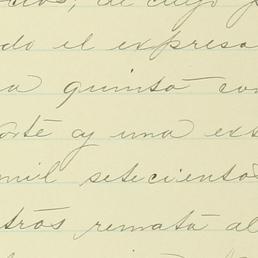 dos; de cuyo p
do el expresa
a quinta con
orte y una ext
mil setecientos
tros remata al